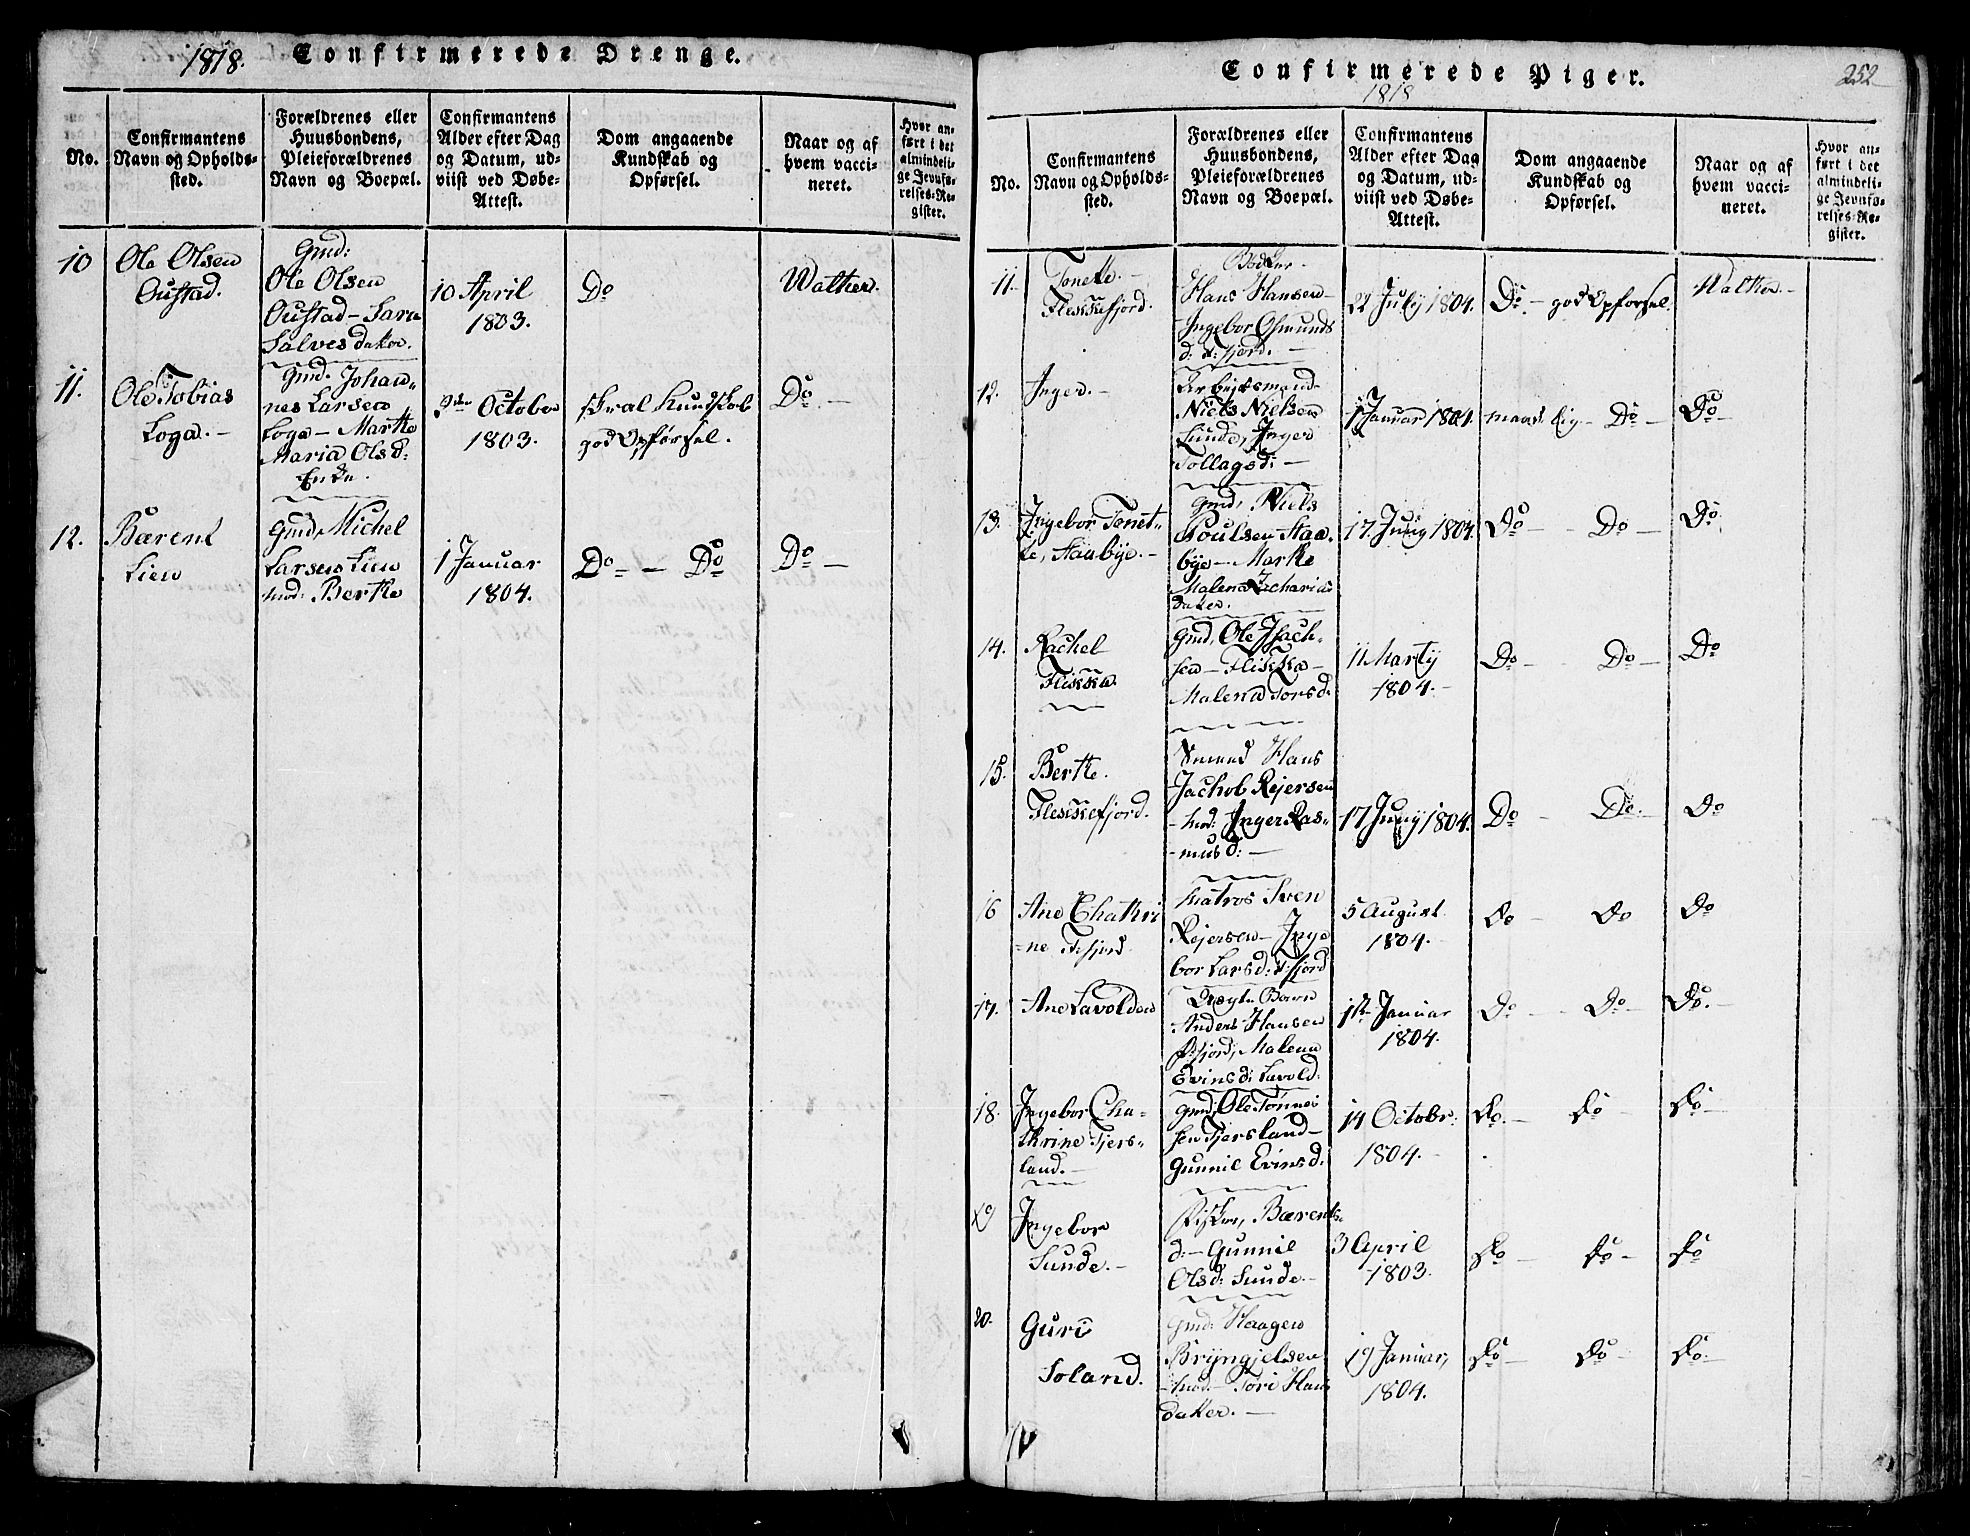 1818.
Confirmerede Drenge.
No.
Confirmantens
Navn og Opholds-
sted.
Forældrenes eller
Huusbondens,
Pleieforældrenes
Navn og Boepæl.
Confirmantens
Alder efter Dag
og Datum, ud-
viist ved Døbe-
Attest.
Dom angaaende
Kundskab og
Opførsel.
Naar og af
hvem vacci-
neret.
Hvor an-
ført i det
almindeli-
ge Jevnfø-
relses-Re-
gister.
10
Ole Olsen
Oustad.
Gmd:
Ole Olsen
Oustad – Sara
Salvesdatter.
10 April
1803.
Do
Walther.
11.
Ole Tobias
Loga. –
Gmd. Johan-
nes Larsen
Loga – Marthe
Maria Olsd:
Enke.
October
1803.
skral Kundskab
god Opførsel.
Do. –
12.
Bærent
Lien
Gmd, Michel
Larsen Lien
mod: Berthe
1 Januar
1804.
Do – Do
Do –
Confirmerede Piger.
1818
252
No.
Confirmantens
Navn og Opholds-
sted.
Forældrenes eller
Huusbondens,
Pleieforældrenes
Navn og Boepæl.
Confirmantens
Alder efter Dag
og Datum, ud-
viist ved Døbe-
Attest.
Dom angaaende
Kundskab og
Opførsel.
Naar og af
hvem vacci-
neret.
Hvor an-
ført i det
almindeli-
ge Jevnfø-
relses-Re-
gister.
11.
Tonette. –
Flekkefjord.
Bødker
Hans Hansen –
Ingebor Osmunds
d: F:fjord. –
22 July 1804.
Do. – god Opførsel.
Walther. –
12.
Inger. –
Arbeidsmand
Niels Nielsen
Lunde, Inger
Tollagsd: –
1 Januar 1804.
maadelig – Do –
Do –
13.
Ingebor Tonet-
te, Staubye. –
Gmd, Niels
Poulsen Stau-
bye – Marthe
Malena Zacharias
datter.
17. Juny 1804.
Do – Do –
Do
14.
Rachel
Flikka.
Gmd, Ole Isach-
sen – Flikka –
Malena Torsd:
11 Marty
1804. –
Do – Do –
Do
15.
Berthe.
Flekkefjord.
Hans
Jachob Rejersen
– mod: Inger Ras-
musd: –
17 Juny 1804.
Do – Do.
Do
16
Ane Chathri
ne F:fjord
Matros Sven
Rejersen – Inge
bor Larsd: F:fjord
5 August
1804.
Do – Do
Do
17.
Ane Lavolden
Uægte Barn
Anders Hansen
F:fjord, Malena
Evinsd: Lavold:
1ste Januar
1804.
Do – Do –
Do. –
18.
Ingebor Cha-
thrine Tjers-
land. –
Gmd, Ole Tønnes
sen Tjersland –
Gunnil Evinsd.
14 Octobr:
1804. –
Do. – Do –
Do –
19
Ingebor
Sunde. –
Fisker, Bærents-
d: – Gunnil
Olsd: Sunde. –
3 April
1803.
Do – Do –
Do
20.
Guri
Soland.
Gmd: Haagen
Bryngjelsen
– mod – Tori Hans
datter. –
19 Januar,
1804.
Do – Do –
Do –